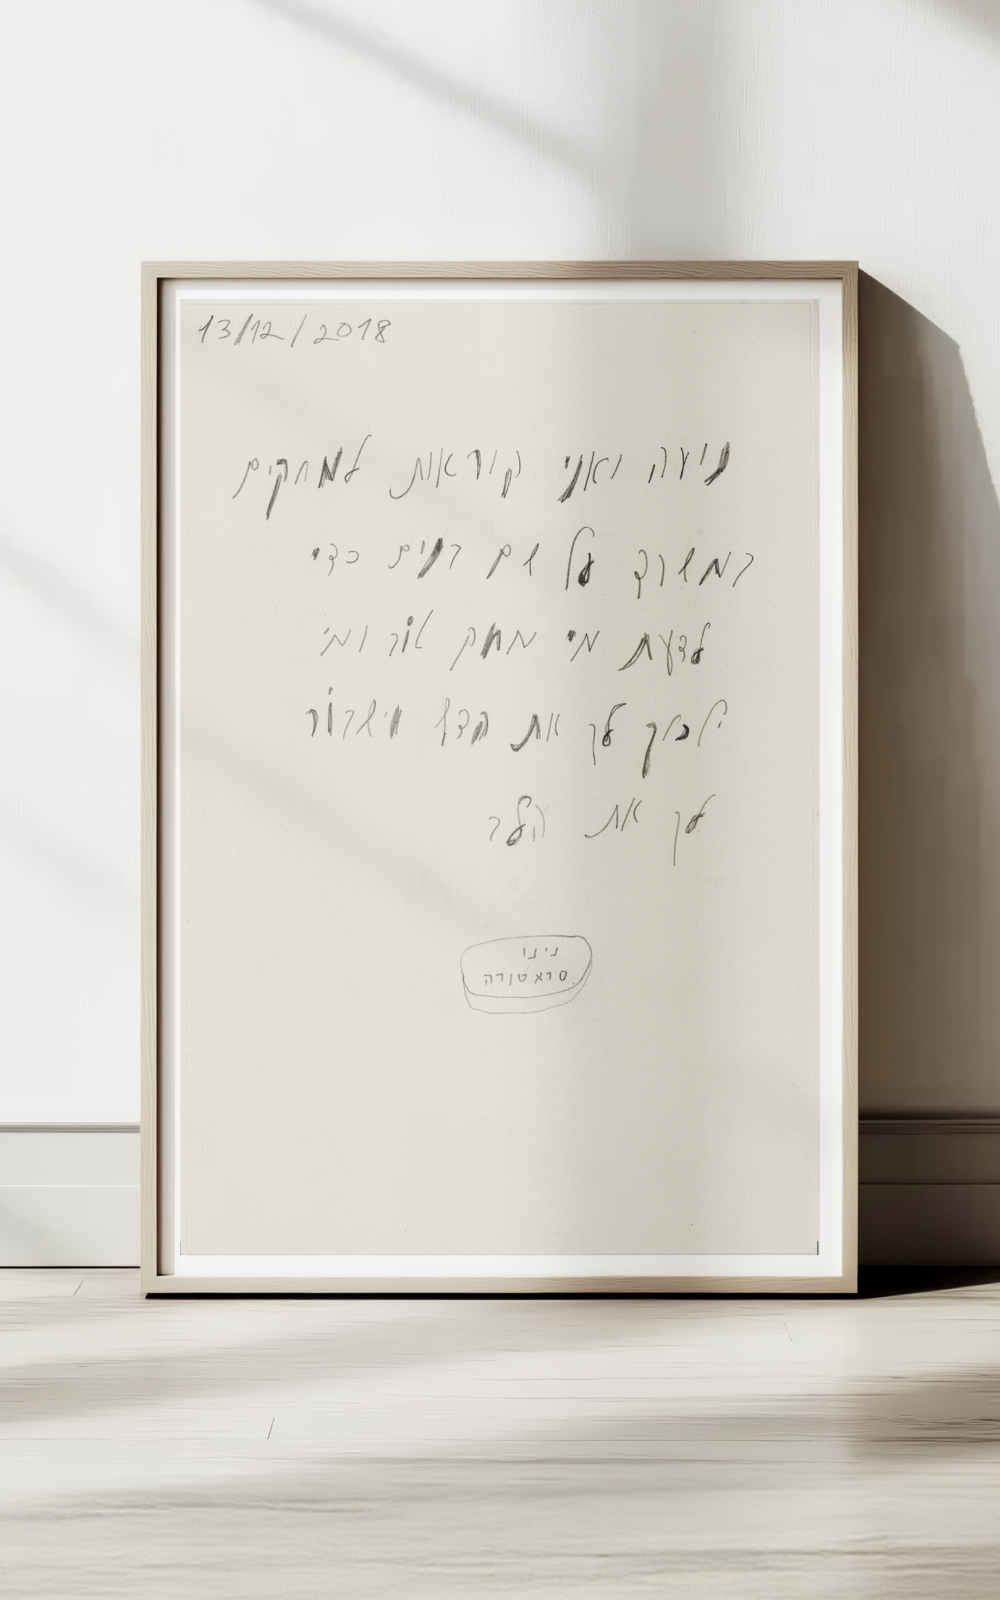 13/12/2018
נועה ואני קוראות למחקים
במשרד על שם רמים כדי
לדעת מי מחק טוב ומי
ילכלך לך את הדף וישבור
לך את הלב
נינו
סראטורה